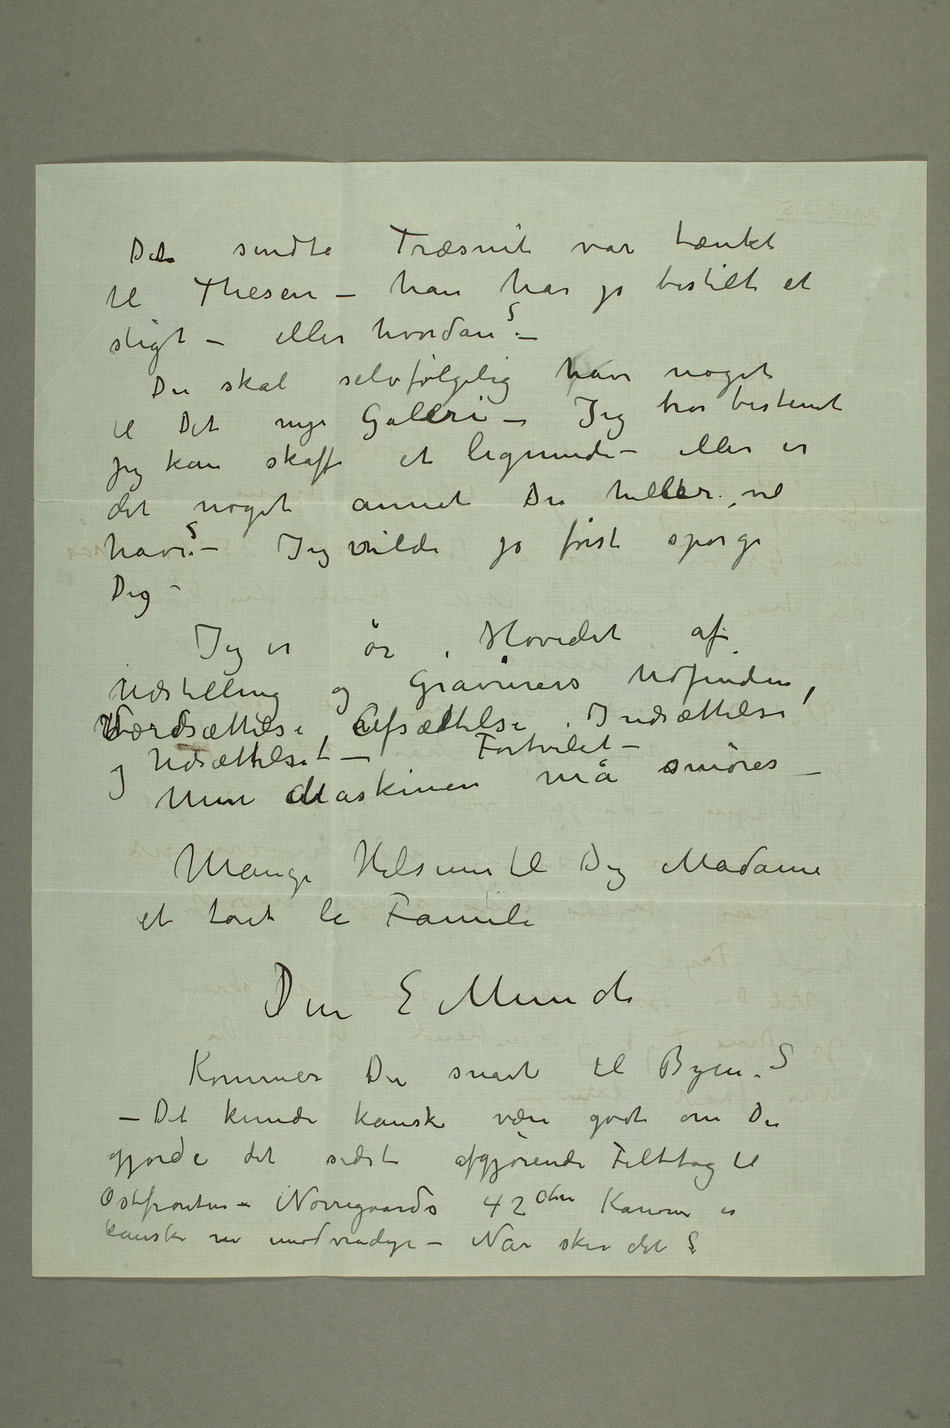 Det sendte Træsnit var tænkt
til Thesen – han har jo bestilt et
sligt – eller hvordan? –
Du skal selvfølgelig have noget
til Det nye Galleri – Jeg tror bestemt
jeg kan skaffe et lignende – eller er
det noget annet Du heller vil
have? – Jeg vilde jo først spørge
Dig –
Jeg er ør i Hovedet af
Udstilling og Gravurers Udfinden,
Værdsættelse, Afsættelse, Indsættelse
og Udsættelse! – Fortvilet –
Min Maskineri må smøres –
Mange Hilsener til Dig Madame
et tout le Famile
Din E Munch
Kommer Du snart til Byen. ?
– Det kunde kanske være godt om Du
gjorde det sidste afgjørende Felttog til
Østfronten – Nørregaards 42 ctm Kanon er
kanske nu unødvendige – Når sker det ?